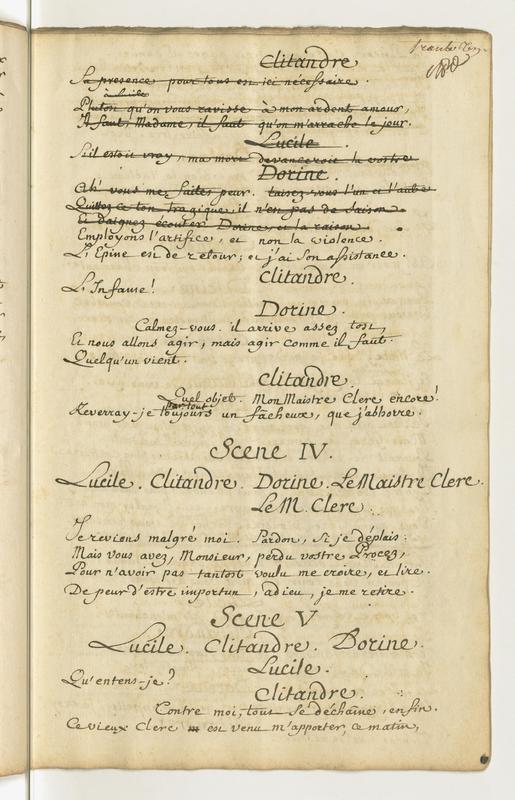 Clitandre
Sa presence pour tous est ici nécessaire.
à Lucile
Pluton qu'on vous ravisse à mon ardent amour,
Il faut, Madame, il faut qu'on m'arrache le jour.
Lucile.
S'il estoit vray, ma mort devanceroit la vostre
Dorine.
Ah! vous me faites peur. taisez-vous l'un et l'autre
Quittez ce ton tragique, il n'est pas de saison.
Et daignez écouter Dorine, et la raison.
Employons l'artifice, et non la violence.
L'Epine est de retour; et j'ai son assistance.
Clitandre.
L'Infame!
Dorine.
Calmez-vous. il arrive assez tost,
Et nous allons agir, mais agir comme il faut.
Quelqu'un vient.
Clitandre.
Quel objet. Mon Maistre Clerc encore!
par tout
Reverray-je toujours un fâcheux, que j'abhorre.
Scene IV.
Lucile. Clitandre. Dorine. Le Maistre Clerc.
Le M. Clerc.
Je reviens malgré moi. Pardon, si je déplais:
Mais vous avez, Monsieur, perdu vostre Procez,
Pour n'avoir pas tantost voulu me croire, et lire.
De peur d'estre importun, adieu, je me retire.
Scene V
Lucile. Clitandre. Dorine.
Lucile.
Qu'entens-je?
Clitandre.
Contre moi, tout se déchaîne, enfin.
Ce vieux Clerc est venu m'apporter, ce matin,